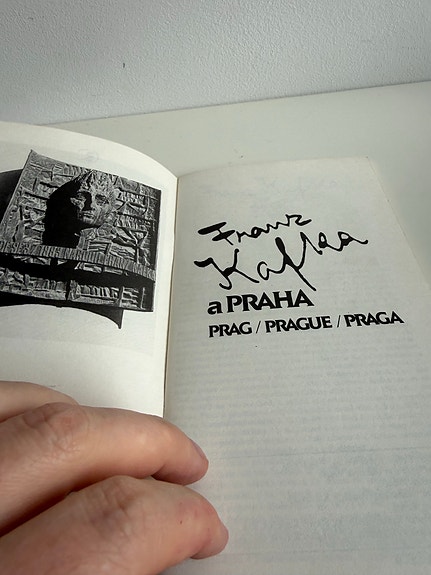 Franz
Kafka
a PRAHA
PRAG / PRAGUE / PRAGA